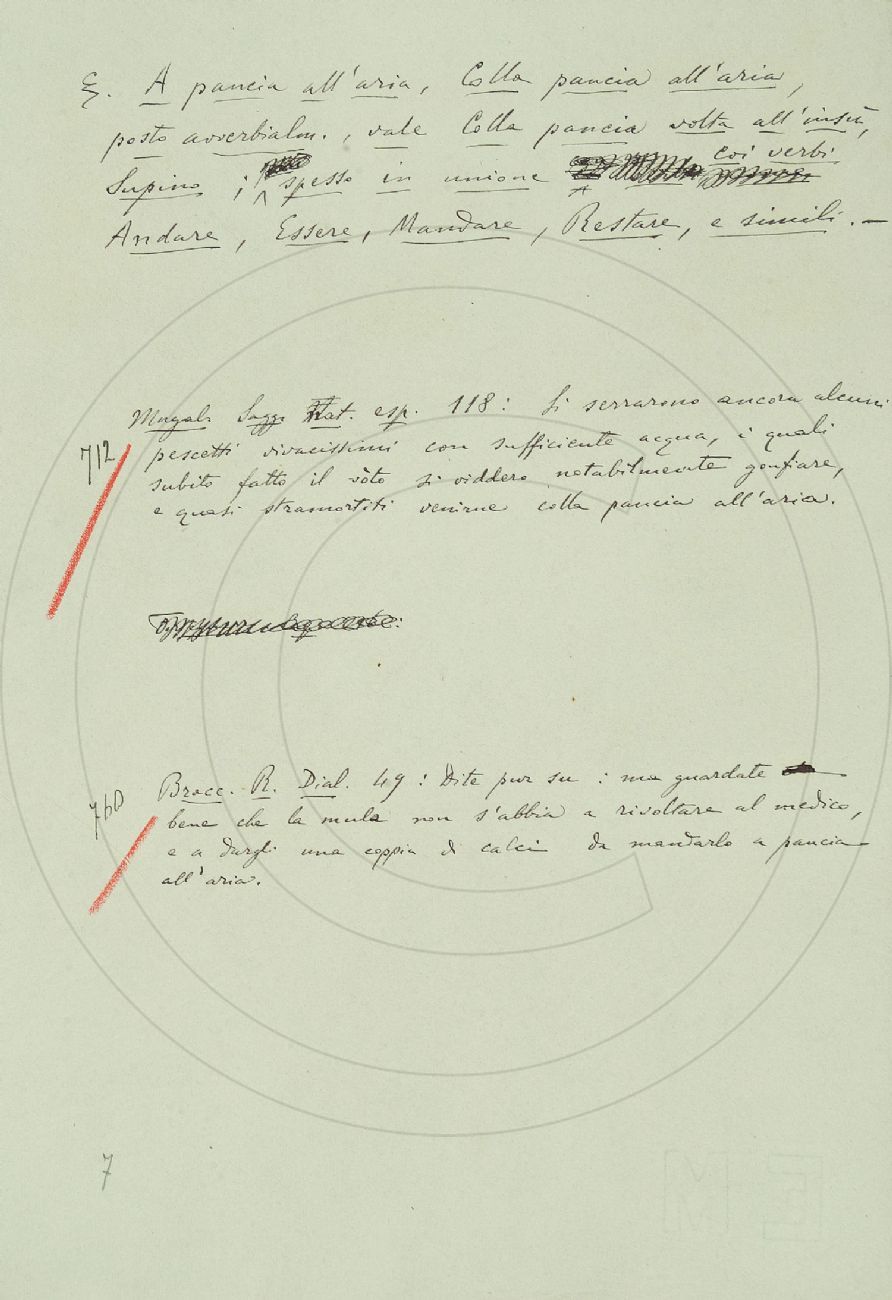 ξ. A pancia all'aria, Colla pancia all'aria,
posto avverbialm., vale Colla pancia volta all'insù,
Supino; spesso in unione coi verbi
Andare, Essere, Mandare, Restare, e simili. —
712
Magal. Sagg. Nat. esp. 118: Si serrarono ancora alcuni
pescetti vivacissimi con sufficiente acqua, i quali
subito fatto il vòto si viddero notabilmente gonfiare,
e quasi stramortiti venirne colla pancia all'aria.
760
Bracc. R. Dial. 49: Dite pur su: ma guardate
bene che la mula non s'abbia a rivoltare al medico,
e a dargli una coppia di calci da mandarlo a pancia
all'aria.
7